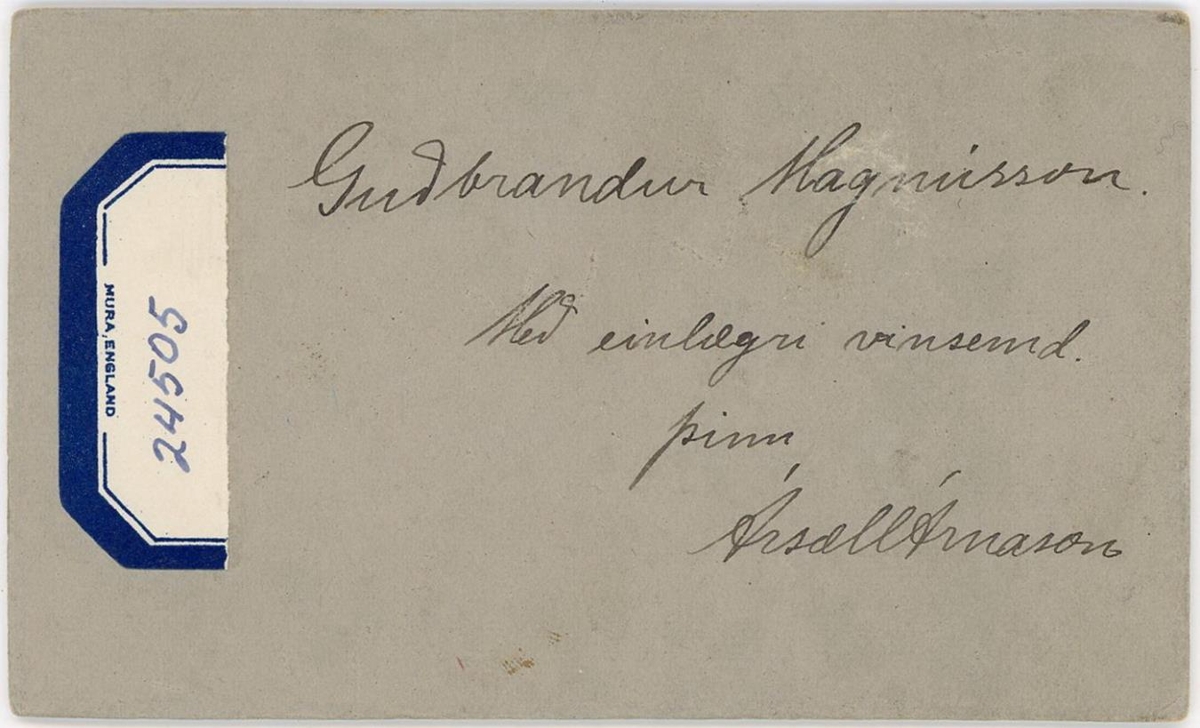 Guðbrandur Magnússon.
Með einlægri vinsemd.
þinn
Ársæll Árnason
MURA, ENGLAND
24505